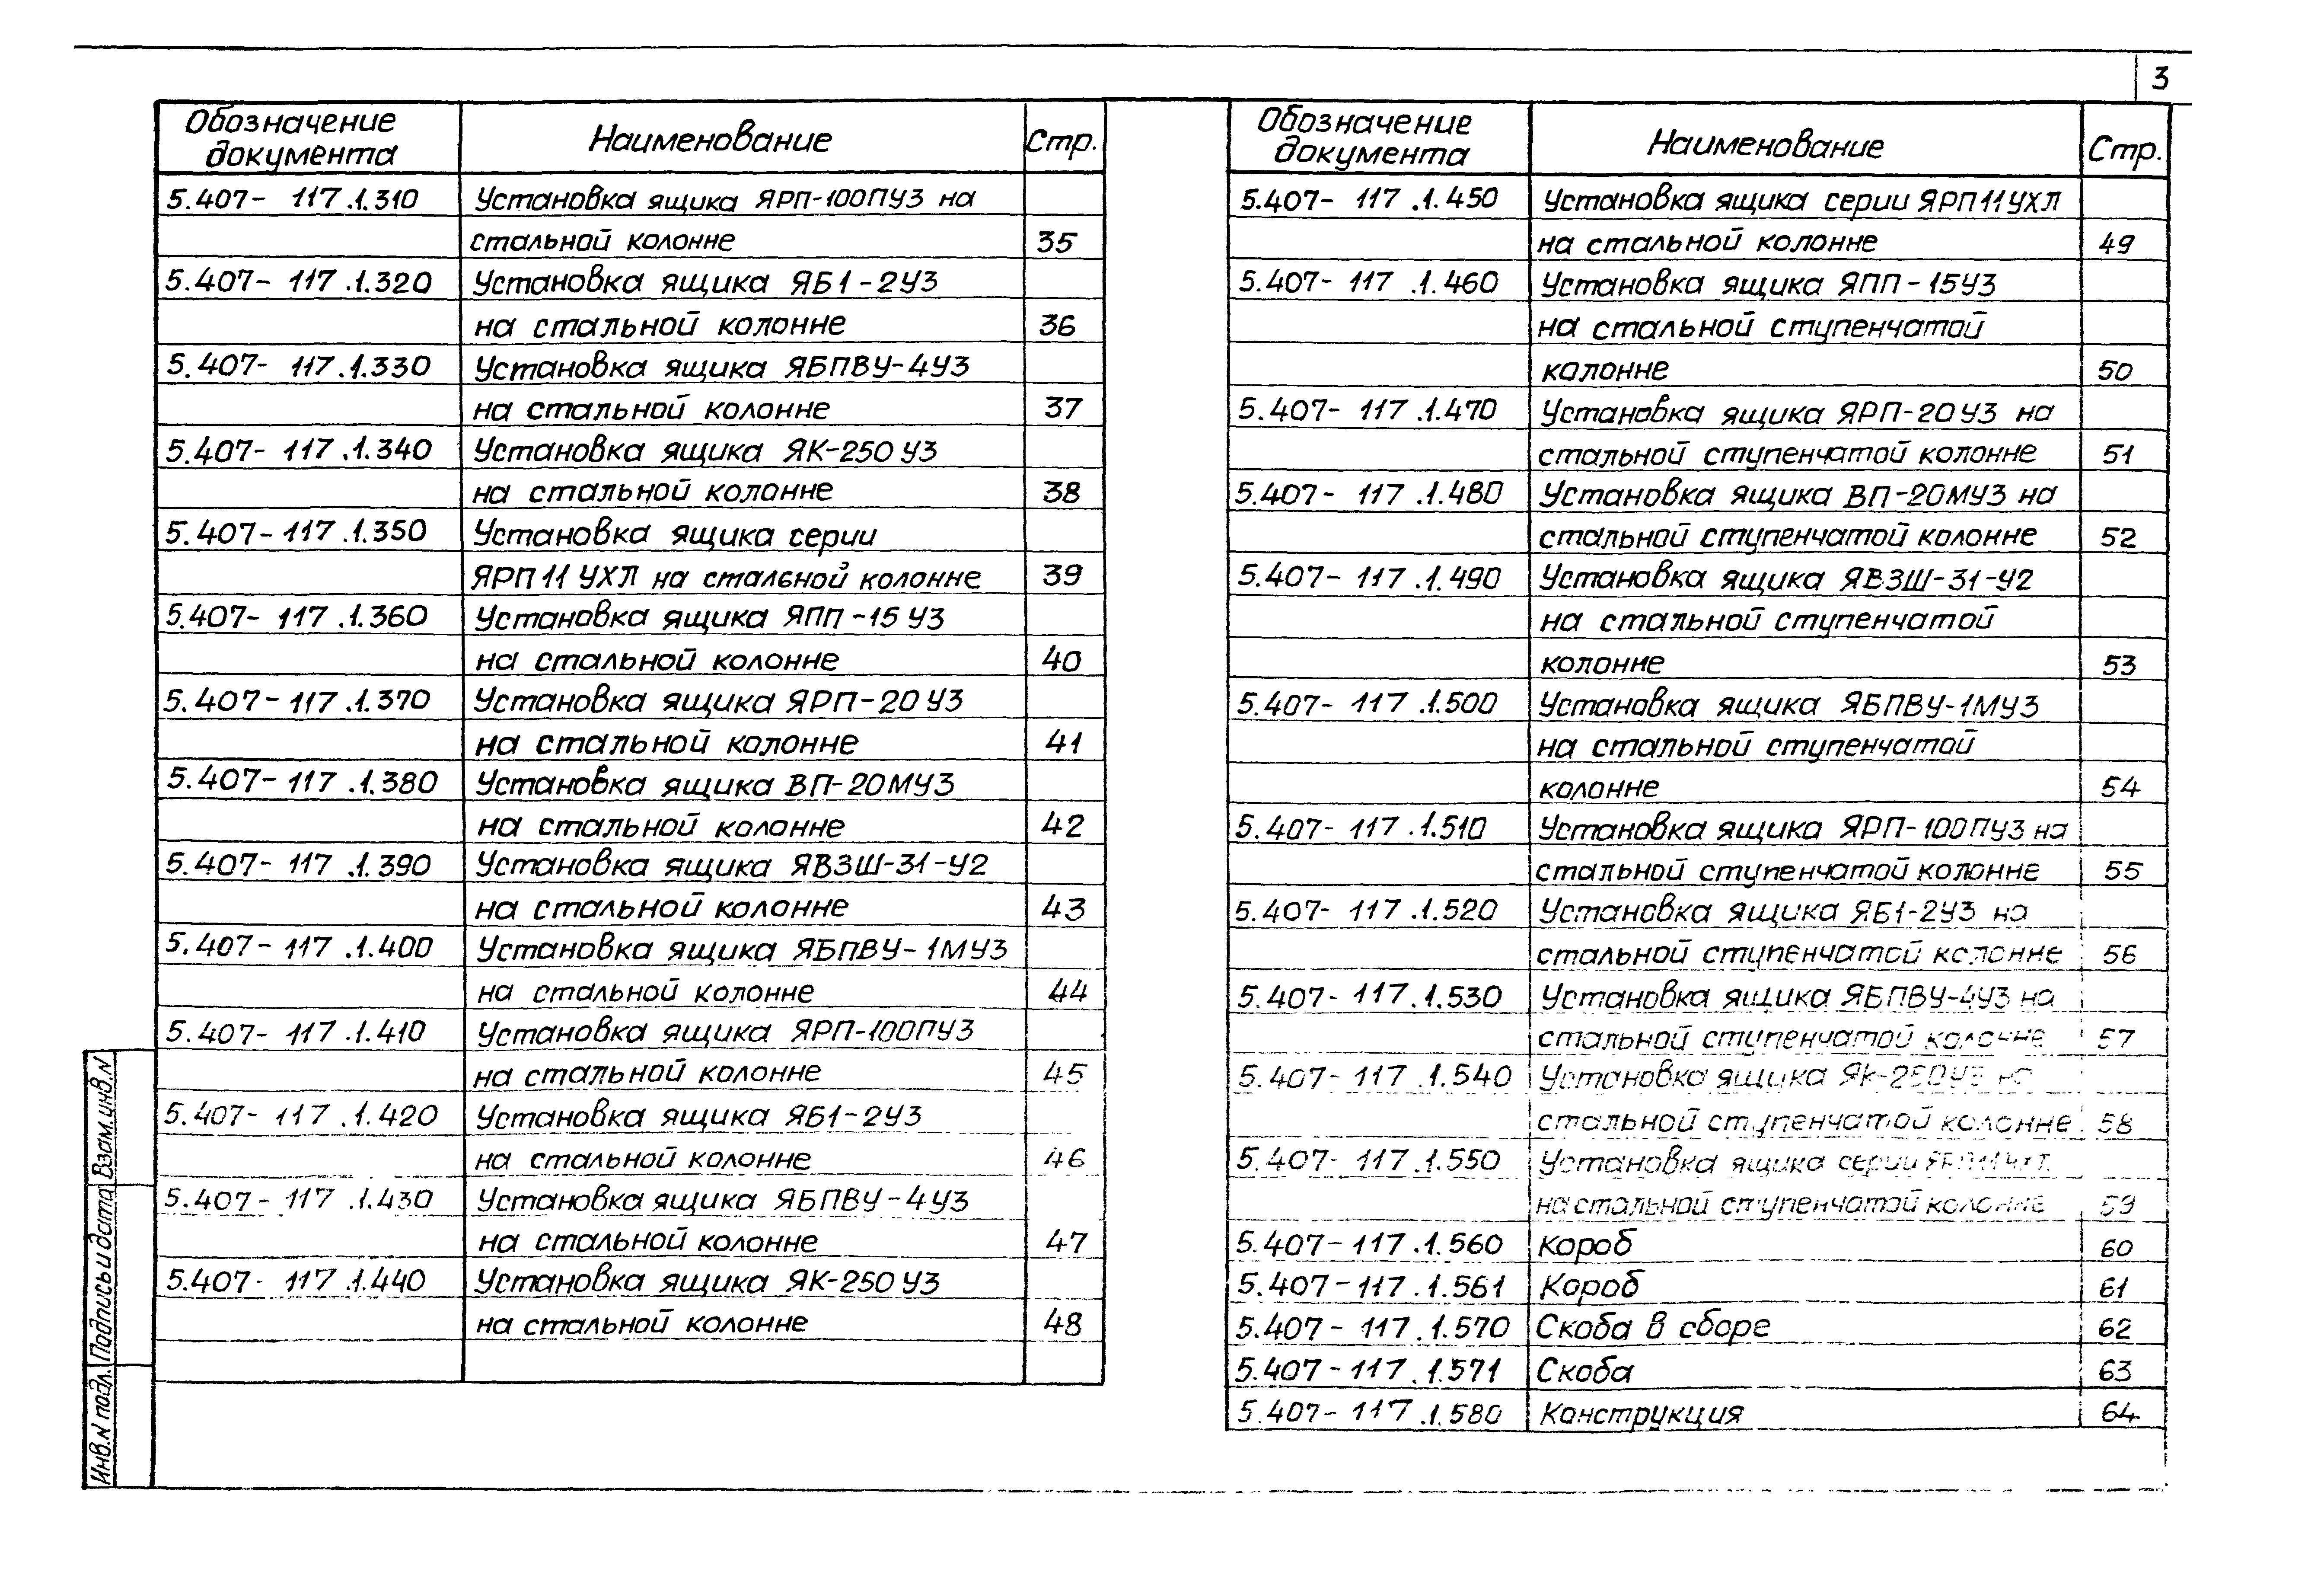 3
Обозначение документа Наименование Стр.
5.407- 117.1.310 Установка ящика ЯРП-100ПУ3 на
стальной колонне 35
5.407- 117.1.320 Установка ящика ЯБ1-2У3
на стальной колонне 36
5.407- 117.1.330 Установка ящика ЯБПВУ-4У3
на стальной колонне 37
5.407- 117.1.340 Установка ящика ЯК-250 У3
на стальной колонне 38
5.407- 117.1.350 Установка ящика серии
ЯРП 11 УХЛ на стальной колонне 39
5.407- 117.1.360 Установка ящика ЯПП-15 У3
на стальной колонне 40
5.407- 117.1.370 Установка ящика ЯРП-20 У3
на стальной колонне 41
5.407- 117.1.380 Установка ящика ВП-20МУ3
на стальной колонне 42
5.407- 117.1.390 Установка ящика ЯВЗШ-31-У2
на стальной колонне 43
5.407- 117.1.400 Установка ящика ЯБПВУ-1МУ3
на стальной колонне 44
5.407- 117.1.410 Установка ящика ЯРП-100ПУ3
на стальной колонне 45
5.407- 117.1.420 Установка ящика ЯБ1-2У3
на стальной колонне 46
5.407- 117.1.430 Установка ящика ЯБПВУ-4У3
на стальной колонне 47
5.407- 117.1.440 Установка ящика ЯК-250 У3
на стальной колонне 48
Обозначение документа Наименование Стр.
5.407- 117.1.450 Установка ящика серии ЯРП 11 УХЛ
на стальной колонне 49
5.407- 117.1.460 Установка ящика ЯПП-15У3
на стальной ступенчатой
колонне 50
5.407- 117.1.470 Установка ящика ЯРП-20У3 на
стальной ступенчатой колонне 51
5.407- 117.1.480 Установка ящика ВП-20МУ3 на
стальной ступенчатой колонне 52
5.407- 117.1.490 Установка ящика ЯВЗШ-31-У2
на стальной ступенчатой
колонне 53
5.407- 117.1.500 Установка ящика ЯБПВУ-1МУ3
на стальной ступенчатой
колонне 54
5.407- 117.1.510 Установка ящика ЯРП-100ПУ3 на
стальной ступенчатой колонне 55
5.407- 117.1.520 Установка ящика ЯБ1-2У3 на
стальной ступенчатой колонне 56
5.407- 117.1.530 Установка ящика ЯБПВУ-4У3 на
стальной ступенчатой колонне 57
5.407- 117.1.540 Установка ящика ЯК-250У3 на
стальной ступенчатой колонне 58
5.407- 117.1.550 Установка ящика серии ЯРП11УХЛ
на стальной ступенчатой колонне 59
5.407- 117.1.560 Короб 60
5.407- 117.1.561 Короб 61
5.407- 117.1.570 Скоба в сборе 62
5.407- 117.1.571 Скоба 63
5.407- 117.1.580 Конструкция 64
Инв.N подл. Подпись и дата Взам.инв.N